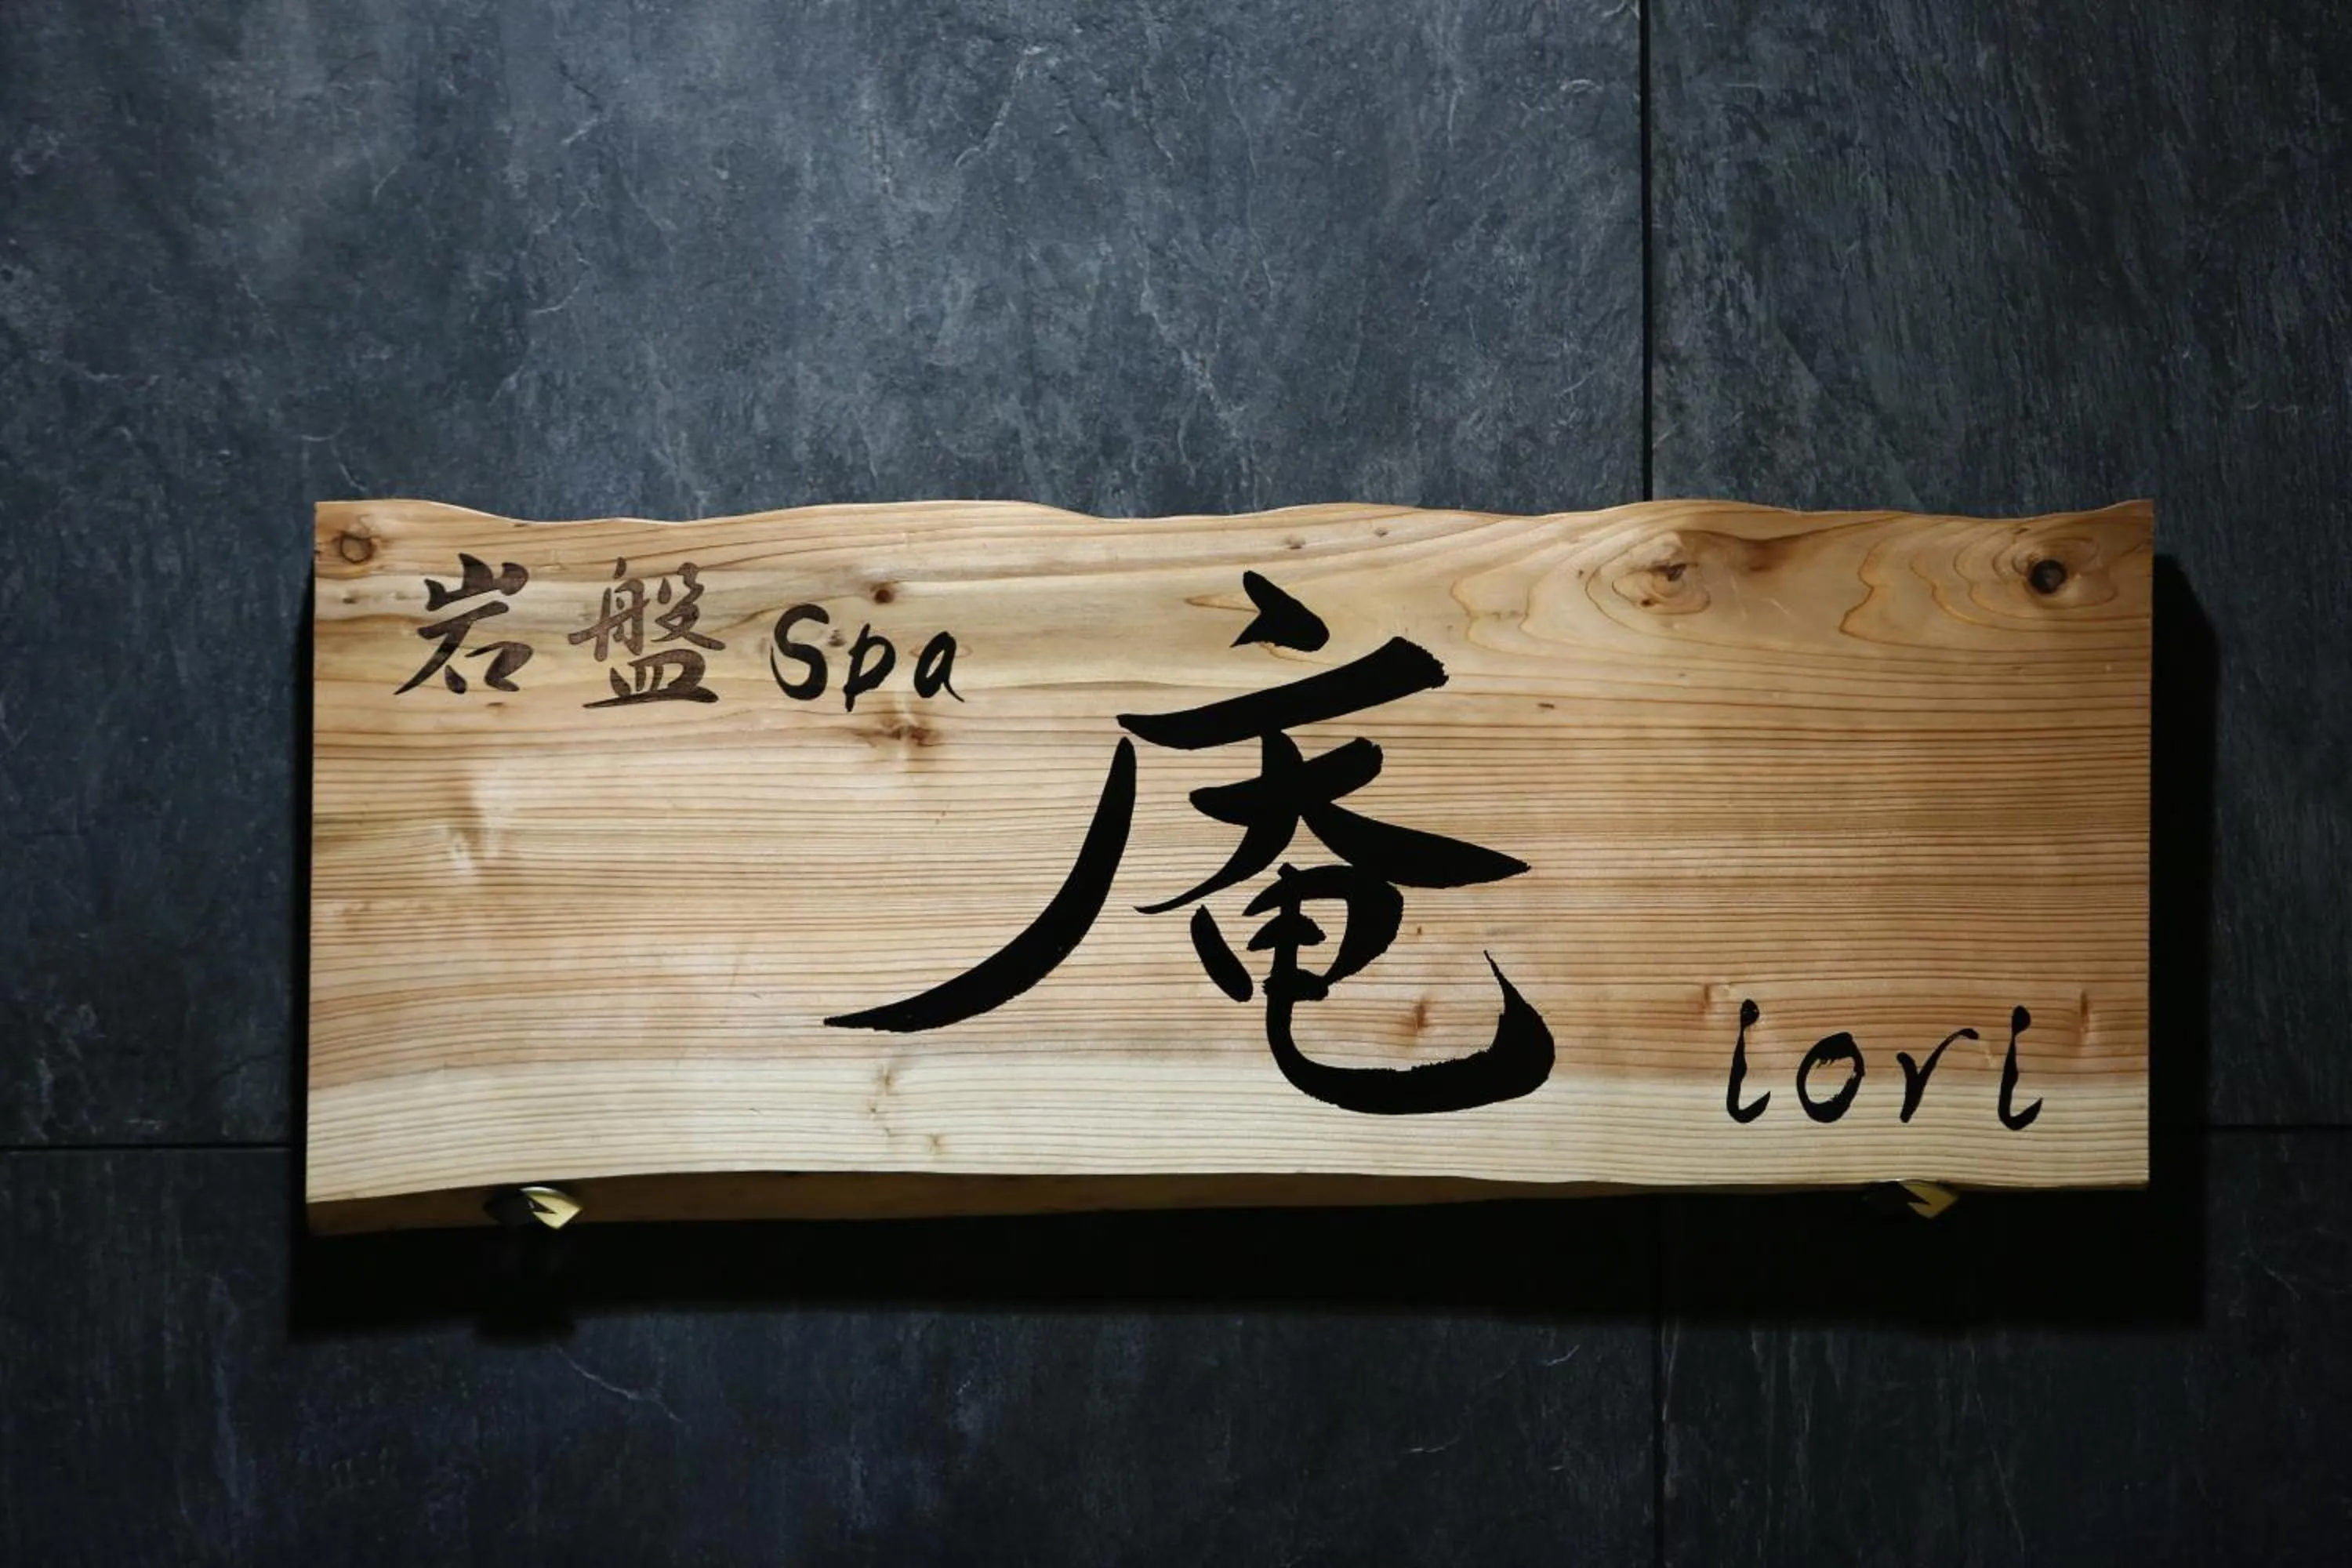 岩盤Spa
庵
iori